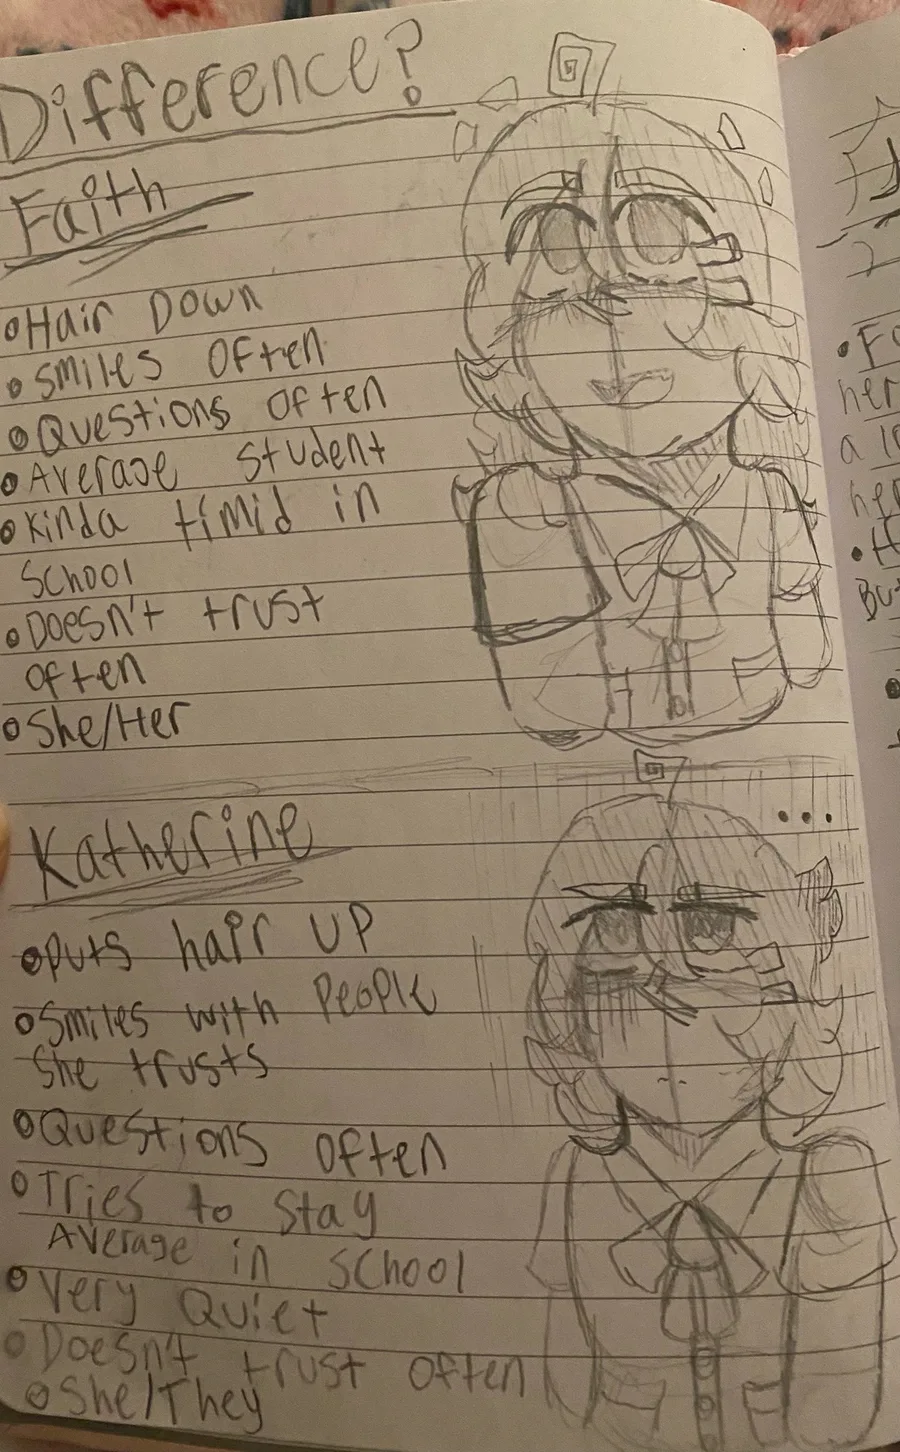 Difference?
Faith
Hair Down
smiles often
Questions often
Average student
kinda timid in
School
Doesn't trust
often
She/Her
Katherine
Puts hair up
Smiles with people
She trusts
Questions often
Tries to stay
Average in school
Very Quiet
Doesn't trust often
She/They
...
her
a
her